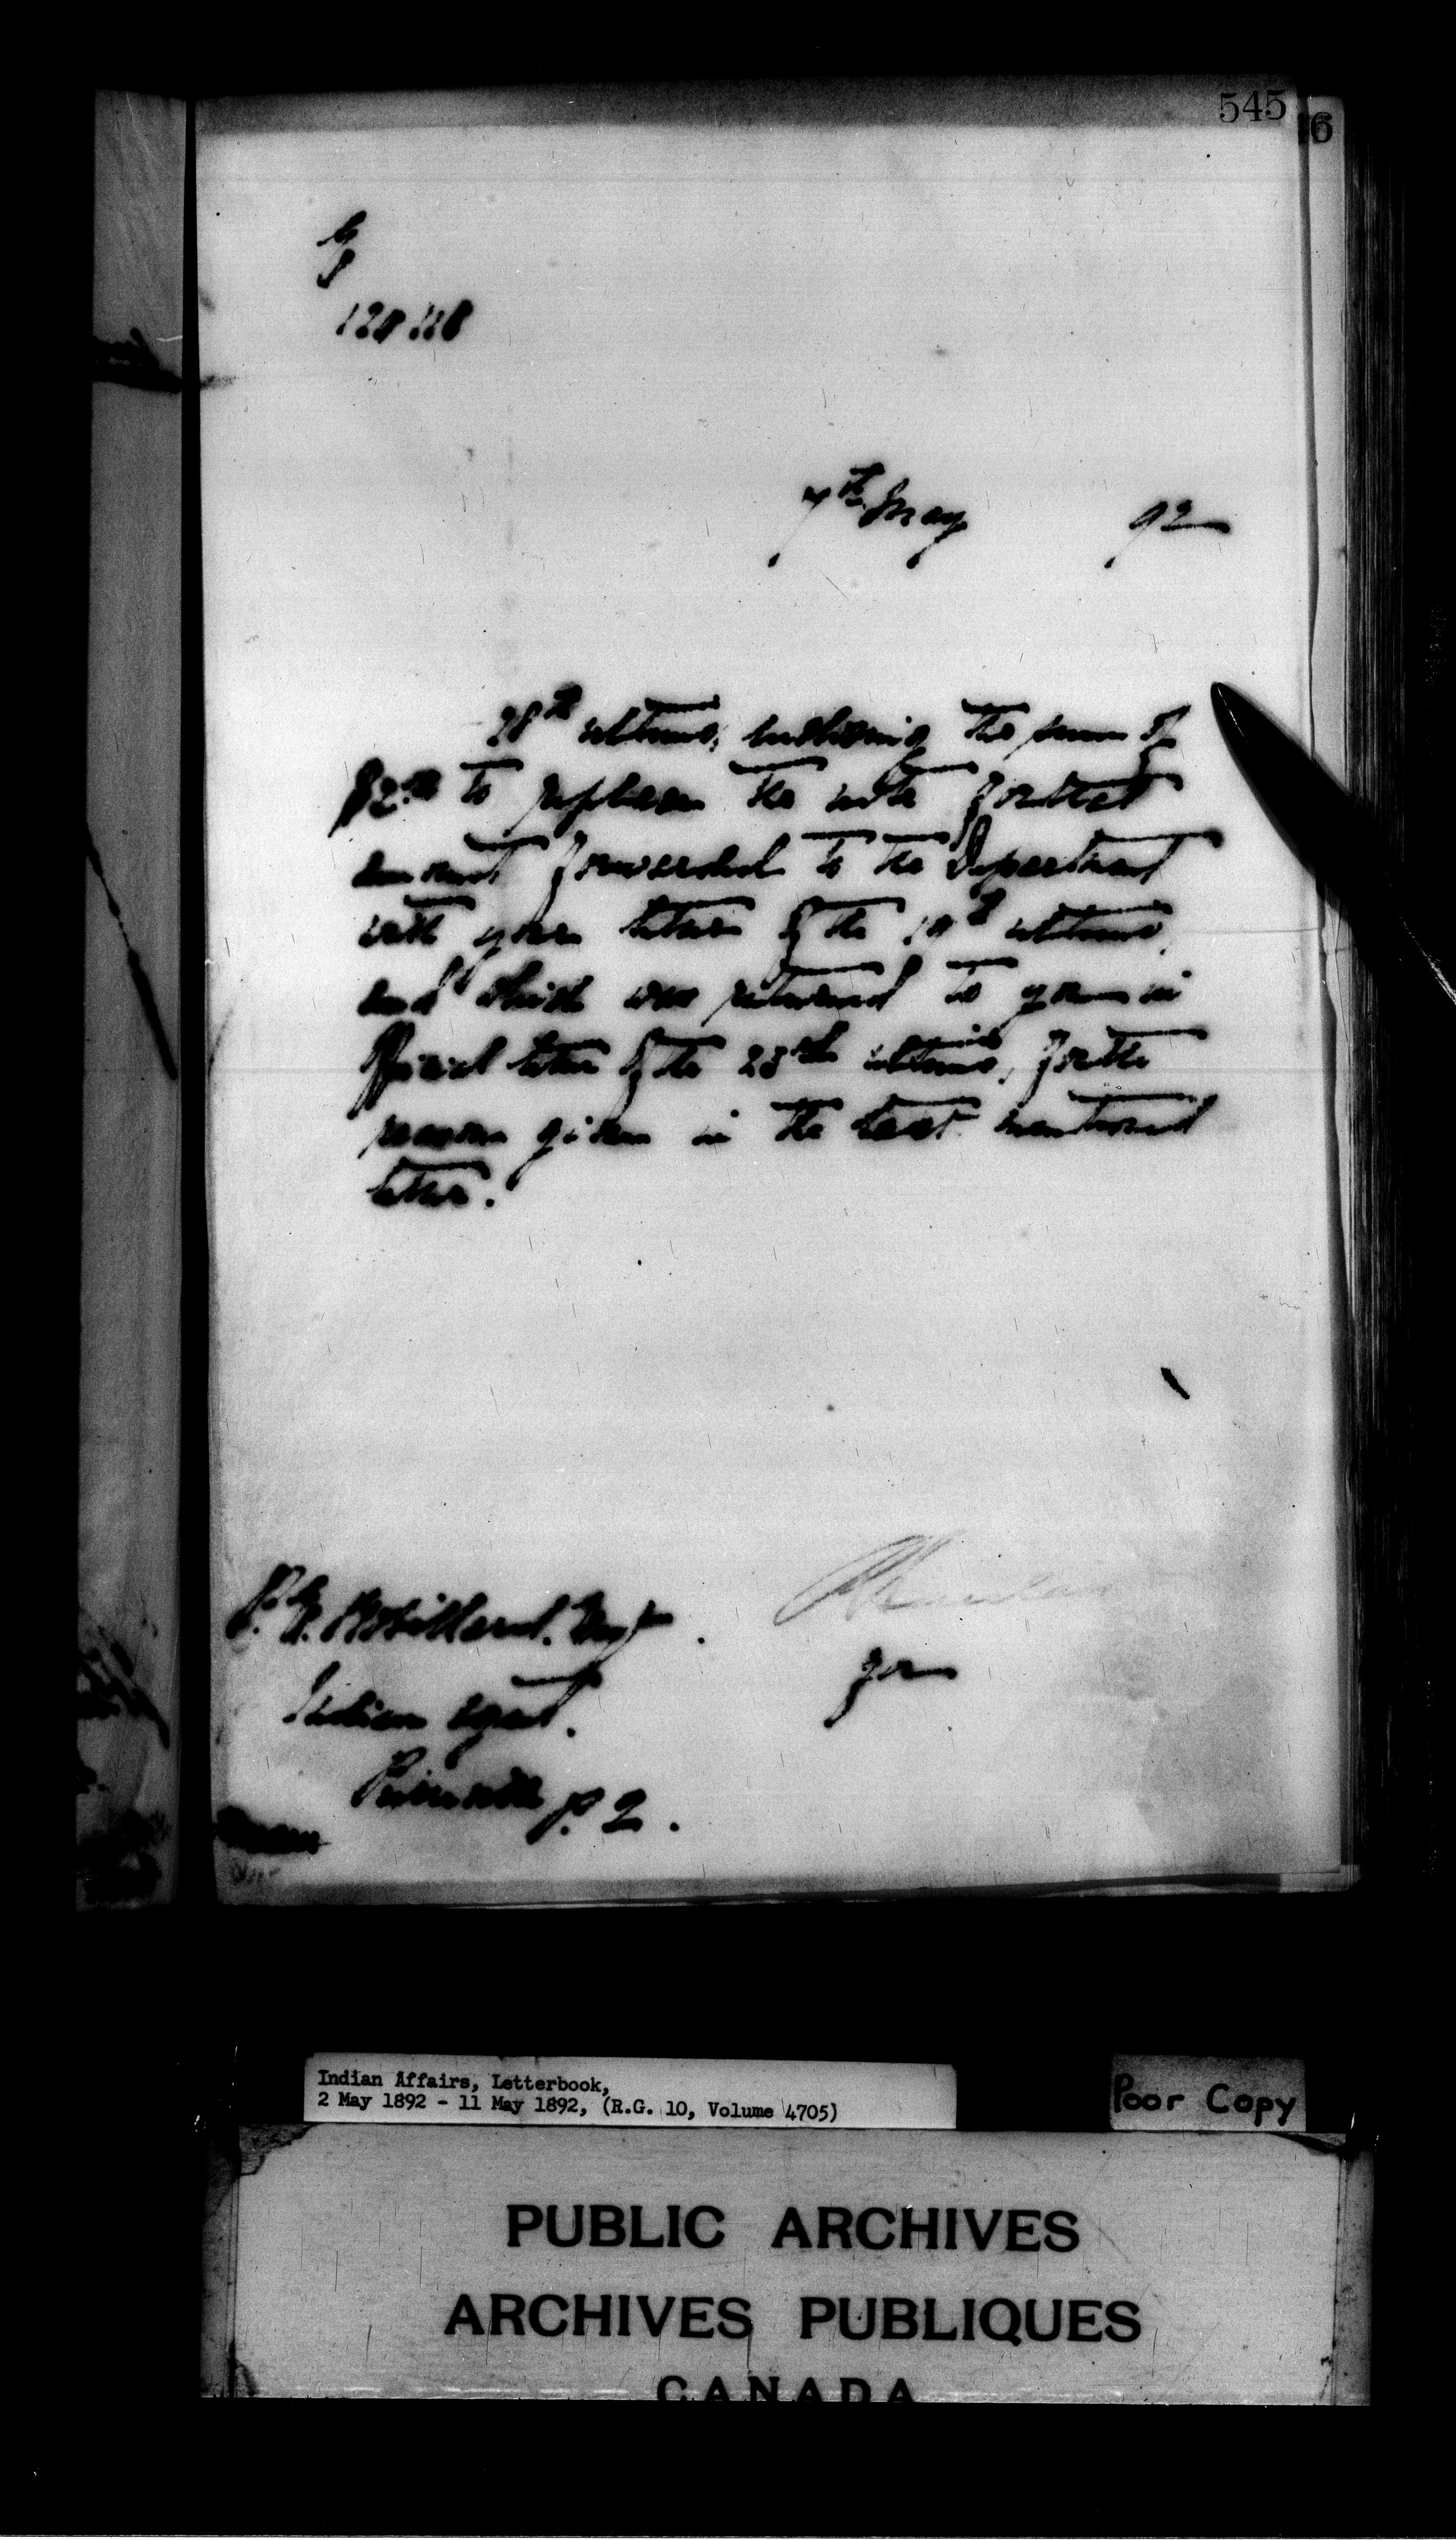 545
6
7th May 92
28th ultimo, enclosing the sum of
$2.00 to replace the note for that
amount forwarded to the Department
with your letter of the 19th ultimo,
and which was returned to you in
official letter of the 23rd ultimo, for the
reason given in the last mentioned
letter.
P. E. Robillard, Esq.
Indian Agent.
for
Pierreville P. Q.
Indian Affairs, Letterbook,
2 May 1892 - 11 May 1892, (R.G. 10, Volume 4705)
Poor Copy
PUBLIC ARCHIVES
ARCHIVES PUBLIQUES
CANADA